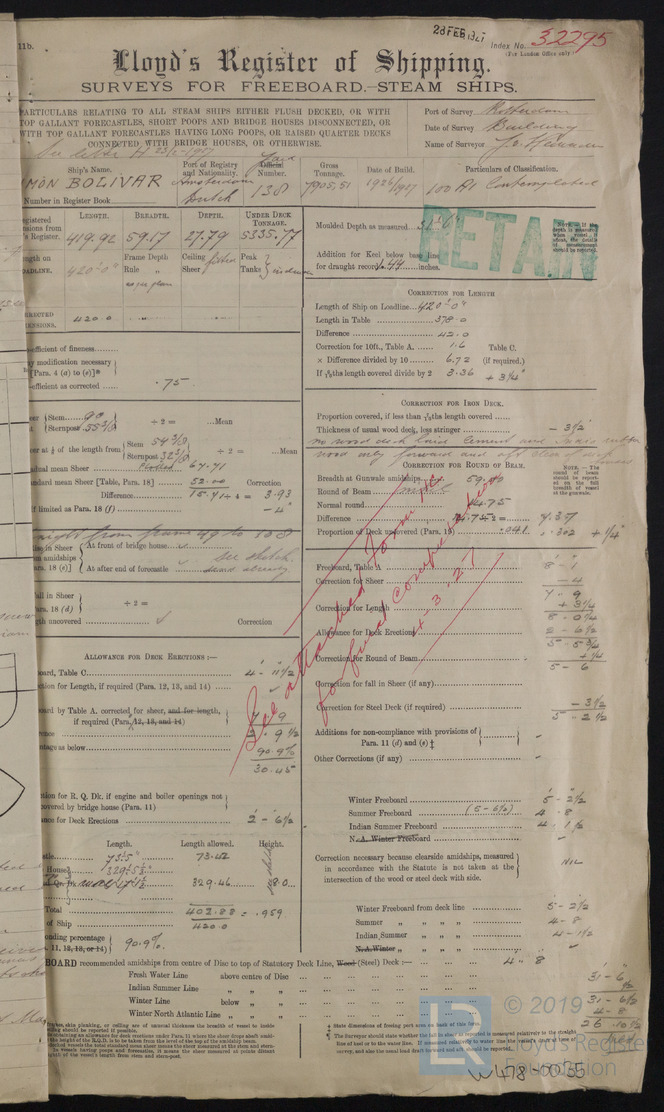 11b.
28 FEB 1927
Index No. 32295
(For London Office only)
Lloyd's Register of Shipping.
SURVEYS FOR FREEBOARD.—STEAM SHIPS.
PARTICULARS RELATING TO ALL STEAM SHIPS EITHER FLUSH DECKED, OR WITH
TOP GALLANT FORECASTLES, SHORT POOPS AND BRIDGE HOUSES DISCONNECTED, OR
WITH TOP GALLANT FORECASTLES HAVING LONG POOPS, OR RAISED QUARTER DECKS
CONNECTED WITH BRIDGE HOUSES, OR OTHERWISE.
Port of Survey Rotterdam
Date of Survey Building
Name of Surveyor
Ship's Name.
MON BOLIVAR
Number in Register Book
Port of Registry and Nationality.
Amsterdam
Dutch
Yard
Official Number.
138
Gross Tonnage.
7905.51
Date of Build.
1926/1927
Particulars of Classification.
100 A1 Contemplated
LENGTH. BREADTH. DEPTH. UNDER DECK TONNAGE.
Register. 419.92 59.17 27.79 5335.77
LOADLINE. 420'0"
Frame Depth
Rule „
Ceiling
Sheer
Peak
Tanks
420.0
Moulded Depth as measured 31'6"
RETAIN
Addition for Keel below base line
for draught record 1.44 inches.
CORRECTION FOR LENGTH
Length of Ship on Loadline 420'0"
Length in Table 378.0
Difference 42.0
Correction for 10ft., Table A. 1.6 Table C.
× Difference divided by 10 6.72 (if required.)
If 6/10ths length covered divide by 2 3.36 + 3¼"
efficient of fineness
y modification necessary
[Para. 4 (a) to (e)]*
efficient as corrected .75
CORRECTION FOR IRON DECK.
Proportion covered, if less than 7/10ths length covered
Thickness of usual wood deck, less stringer — 3½
CORRECTION FOR ROUND OF BEAM.
Breadth at Gunwale amidships
Round of Beam
Normal round 14.75
Difference
Proportion of Deck uncovered (Para. 19) .041 .302 + ¼"
Stem
Sternpost
÷ 2 = ...Mean
er at ⅛ of the length from
Stem
Sternpost
÷ 2 = ...Mean
dual mean Sheer 67.71
ndard mean Sheer [Table, Para. 18] 52.00 Correction
Difference 15.71 ÷ 4 = 3.93
if limited as Para. 18 (f) —4"
At front of bridge house
At after end of forecastle
See sketch.
all in Sheer
ara. 18 (d)
÷ 2 =
th uncovered Correction
Freeboard, Table A 8 - 1
Correction for Sheer — 4
7 - 9
Correction for Length + 3¼
8 - 0¼
Allowance for Deck Erections 2 - 6½
5 - 5¾
Correction for Round of Beam + ¼
5 - 6
Correction for fall in Sheer (if any)
Correction for Steel Deck (if required) — 3½
5 - 2½
Additions for non-compliance with provisions of
Para. 11 (d) and (e) ‡
Other Corrections (if any)
See attached Form
for final computation
4-3-27
ALLOWANCE FOR DECK ERECTIONS :—
oard, Table C 4 - 11½
ction for Length, if required (Para. 12, 13, and 14)
oard by Table A. corrected for sheer, and for length,
if required (Para. 12, 13, and 14) 7 - 9
rence 2 - 9½
tage as below 90.9%
30.45
tion for R. Q. Dk. if engine and boiler openings not
covered by bridge house (Para. 11)
nce for Deck Erections 2 - 6½
Length. Length allowed. Height.
73.42
329.46 8.0
Total 402.88 = .959
of Ship 420.0
onding percentage
a. 11, 12, 13, or 14) 90.9%.
Winter Freeboard 5 - 2½
Summer Freeboard (5-6½) 4 - 8
Indian Summer Freeboard 4 - 1½
N. A. Winter Freeboard
Correction necessary because clearside amidships, measured
in accordance with the Statute is not taken at the
intersection of the wood or steel deck with side.
NIL
Winter Freeboard from deck line 5 - 2½
Summer „ „ „ „ 4 - 8
Indian Summer „ „ „ „ 4 - 1½
N. A. Winter „ „ „ „
BOARD recommended amidships from centre of Disc to top of Statutory Deck Line, Wood (Steel) Deck :— 4 - 8
Fresh Water Line above centre of Disc
Indian Summer Line „ „ „
Winter Line below „ „
Winter North Atlantic Line „ „ „
31 - 6
½
31 - 6½
4 - 8
26 - 10½
© 2019
Lloyd's Register
Foundation
W478-0035